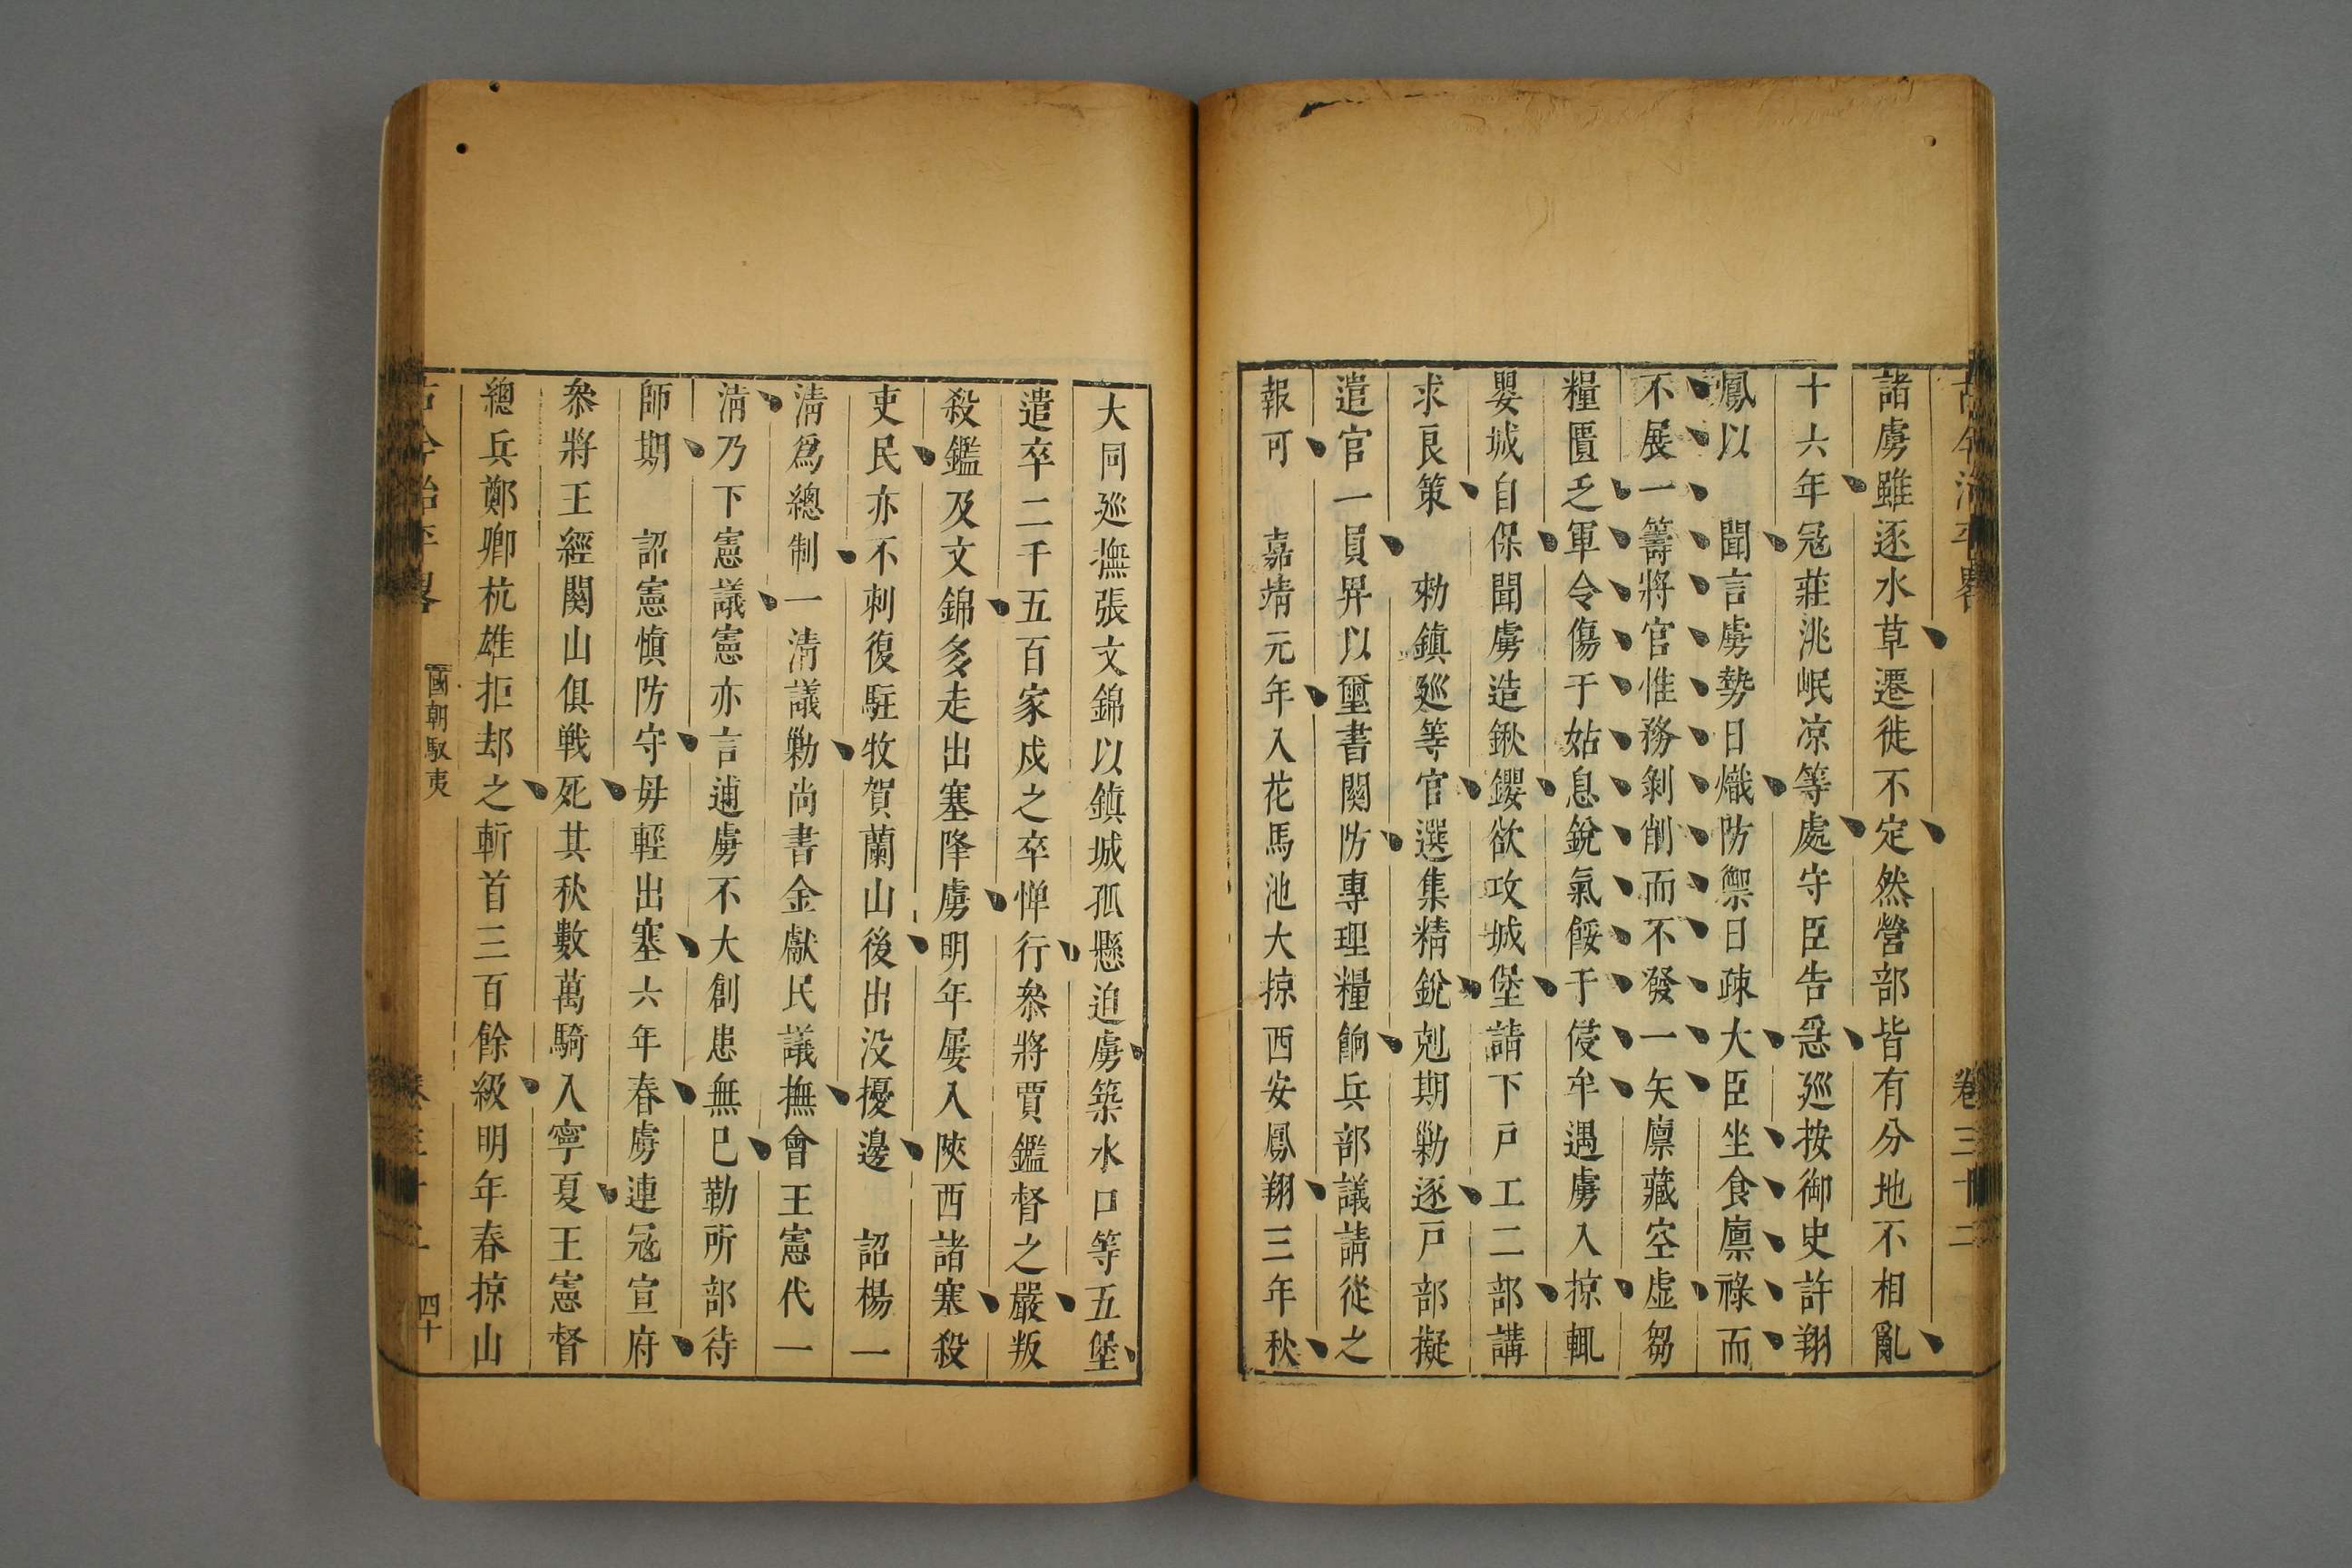 古今治平畧 卷三十二
諸虜雖逐水草遷徙不定然營部皆有分地不相亂
十六年冦莊洮岷凉等處守臣告急廵按御史許翔
鳳以 聞言虜勢日熾防禦日疎大臣坐食廪祿而
不展一籌將官惟務剝削而不發一矢廪藏空虛芻
糧匱乏軍令傷于姑息銳氣餒于侵牟遇虜入掠輒
嬰城自保聞虜造鍬钁欲攻城堡請下戸工二部講
求良策 勑鎮廵等官選集精銳剋期勦逐戸部擬
遣官一員昇以璽書關防專理糧餉兵部議請從之
報可 嘉靖元年入花馬池大掠西安鳳翔三年秋
大同廵撫張文錦以鎮城孤懸迫虜築水口等五堡
遣卒二千五百家戍之卒憚行叅將賈鑑督之嚴叛
殺鑑及文錦多走出塞降虜明年屢入陜西諸寨殺
吏民亦不刺復駐牧賀蘭山後出没擾邊 詔楊一
清爲總制一清議勦尚書金獻民議撫會王憲代一
清乃下憲議憲亦言逋虜不大創患無已勒所部待
師期 詔憲慎防守毋輕出塞六年春虜連冦宣府
叅將王經關山俱戰死其秋數萬騎入寧夏王憲督
總兵鄭卿杭雄拒却之斬首三百餘級明年春掠山
古今治平畧 國朝馭夷 卷三十二 四十